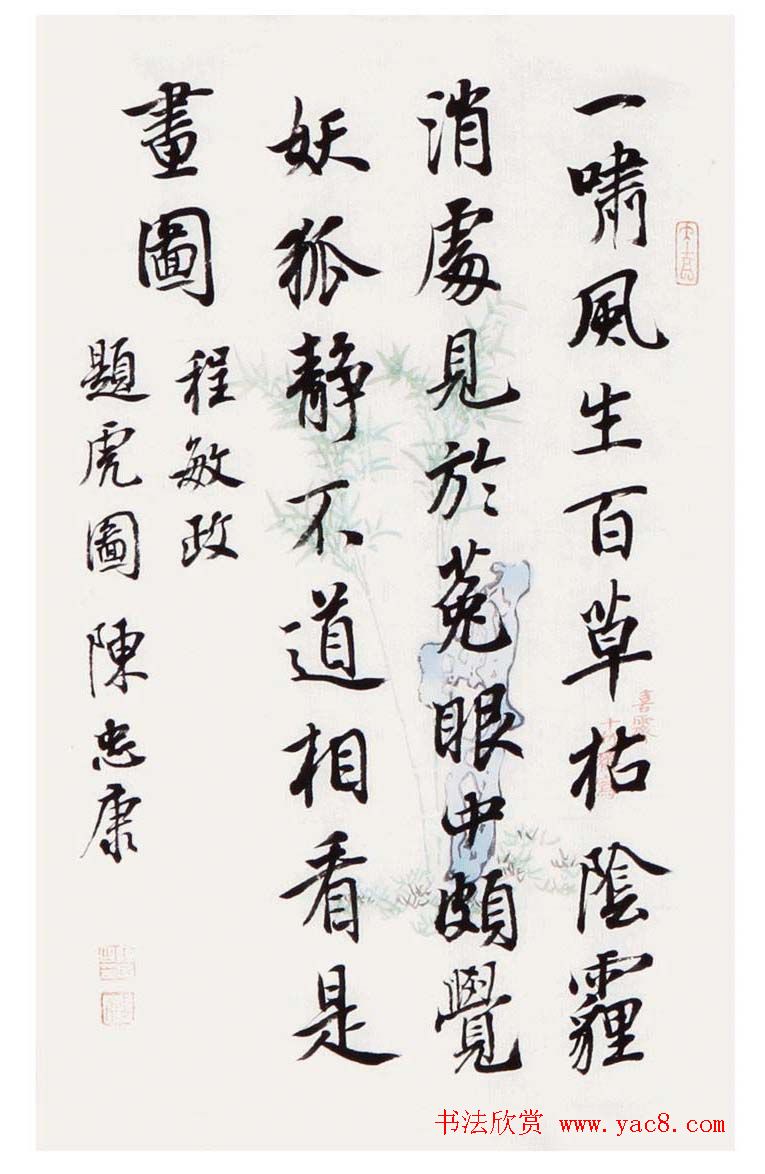 一嘯風生百草枯陰霾
消處見於菟眼中頗覺
妖狐静不道相看是
畫圖
程敏政
題虎圖 陳忠康
书法欣赏 www.yac8.com